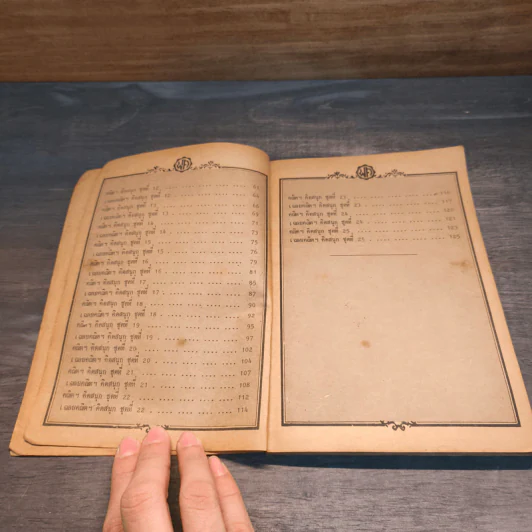 คณิตฯ คิดสนุก ชุดที่ 12
เฉลยคณิตฯ คิดสนุก ชุดที่ 12
คณิตฯ คิดสนุก ชุดที่ 13
เฉลยคณิตฯ คิดสนุก ชุดที่ 13
คณิตฯ คิดสนุก ชุดที่ 14 71
เฉลยคณิตฯ คิดสนุก ชุดที่ 14 73
คณิตฯ คิดสนุก ชุดที่ 15 75
เฉลยคณิตฯ คิดสนุก ชุดที่ 15 76
คณิตฯ คิดสนุก ชุดที่ 16 79
เฉลยคณิตฯ คิดสนุก ชุดที่ 16 81
คณิตฯ คิดสนุก ชุดที่ 17 85
เฉลยคณิตฯ คิดสนุก ชุดที่ 17 87
คณิตฯ คิดสนุก ชุดที่ 18 90
เฉลยคณิตฯ คิดสนุก ชุดที่ 18 92
คณิตฯ คิดสนุก ชุดที่ 19 95
เฉลยคณิตฯ คิดสนุก ชุดที่ 19 97
คณิตฯ คิดสนุก ชุดที่ 20 102
เฉลยคณิตฯ คิดสนุก ชุดที่ 20 104
คณิตฯ คิดสนุก ชุดที่ 21 107
เฉลยคณิตฯ คิดสนุก ชุดที่ 21 108
คณิตฯ คิดสนุก ชุดที่ 22 112
เฉลยคณิตฯ คิดสนุก ชุดที่ 22 114
คณิตฯ คิดสนุก ชุดที่ 23
เฉลยคณิตฯ คิดสนุก ชุดที่ 23 117
คณิตฯ คิดสนุก ชุดที่ 24
เฉลยคณิตฯ คิดสนุก ชุดที่ 121
คณิตฯ คิดสนุก ชุดที่ 25 123
เฉลยคณิตฯ คิดสนุก ชุดที่ 25 125